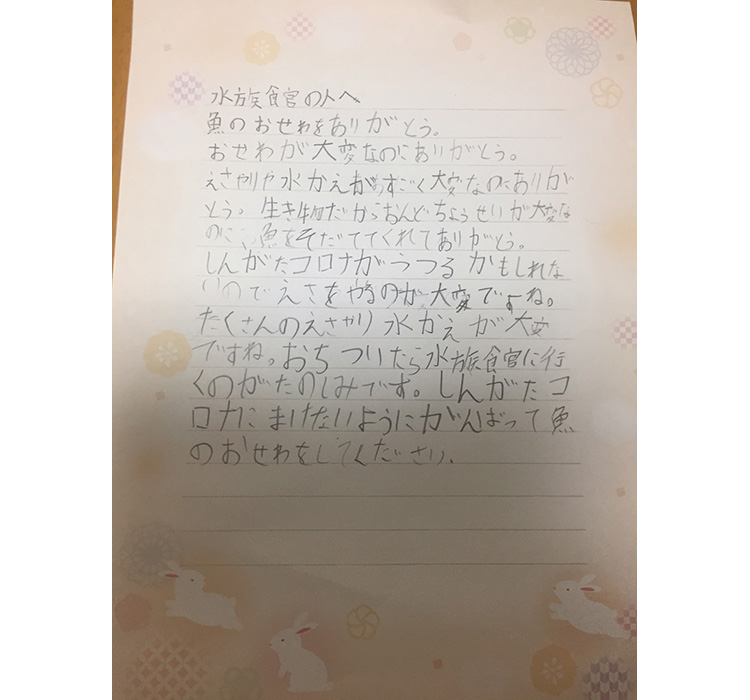 水族食官の人へ
魚のおせわをありがとう。
おせわが大変なのにありがとう。
えさやりや水かえがすごく大変なのにありが
とう。生き物だからおんどちょうせいが大変な
のに魚をそだててくれてありがとう。
しんがたコロナがうつるかもしれな
いのでえさをやるのが大変ですね。
たくさんのえさやり水かえが大変
ですね。おちついたら水族食官に行
くのがたのしみです。しんがたコ
ロナにまけないようにがんばって魚
のおせわをしてください.